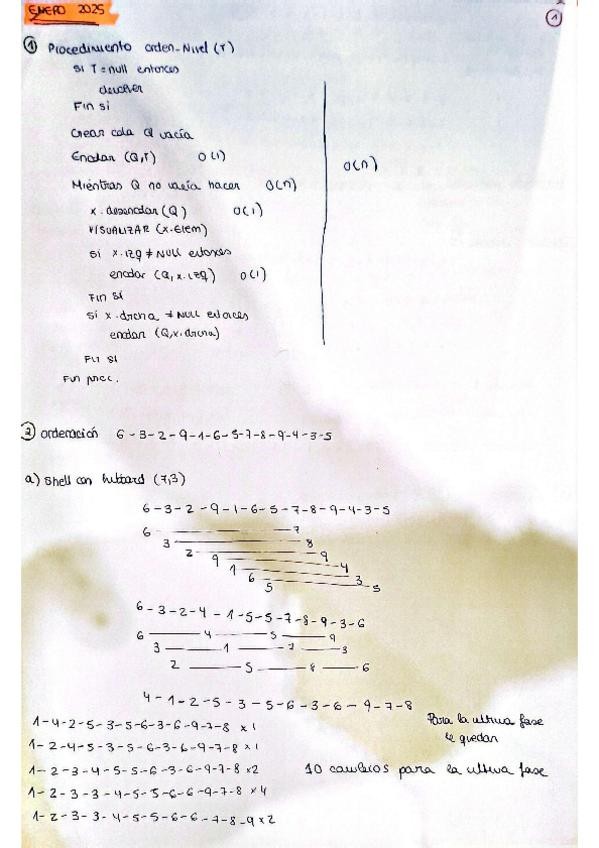 ENERO 2025
1
① Procedimiento orden-Nivel (T)
si T = null entonces
devolver
Fin si
Crear cola Q vacía
Encolar (Q,T) O(1)
Mientras Q no vacía hacer O(n)
O(n)
x. desencolar (Q) O(1)
VISUALIZAR (x.Elem)
si x.izq ≠ NULL entonces
encolar (Q, x.izq) O(1)
Fin si
si x.drcha ≠ NULL entonces
encolar (Q,x.drcha)
Fin si
Fin proc.
② ordenación 6-3-2-9-1-6-5-7-8-9-4-3-5
a) Shell con hibbard (7,3)
6-3-2-9-1-6-5-7-8-9-4-3-5
6 7
3 8
2 9
9 4
1 3
6 5
5
6-3-2-4-1-5-5-7-8-9-3-6
6 4 5 9
3 1 7 3
2 5 8 6
4-1-2-5-3-5-6-3-6-9-7-8
1-4-2-5-3-5-6-3-6-9-7-8 x1
Para la ultima fase
1-2-4-5-3-5-6-3-6-9-7-8 x1
quedan
1-2-3-4-5-5-6-3-6-9-7-8 x2
10 cambios para la ultima fase
1-2-3-3-4-5-5-6-6-9-7-8 x4
1-2-3-3-4-5-5-6-6-7-8-9 x2